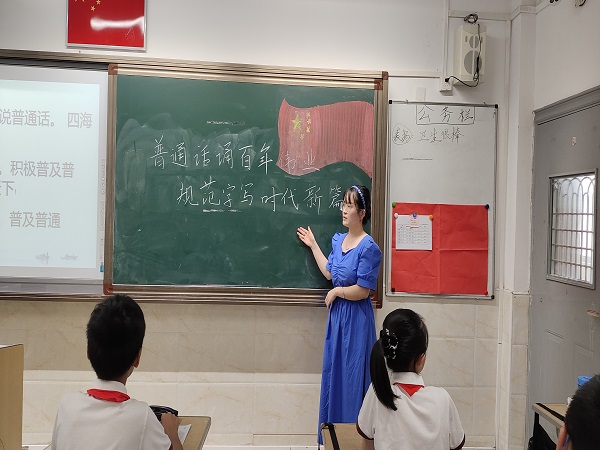 说普通话。四海
。积极普及普
下;
普及普通
普通话诵百年伟业
规范字写时代新篇
公务栏
卫生早操